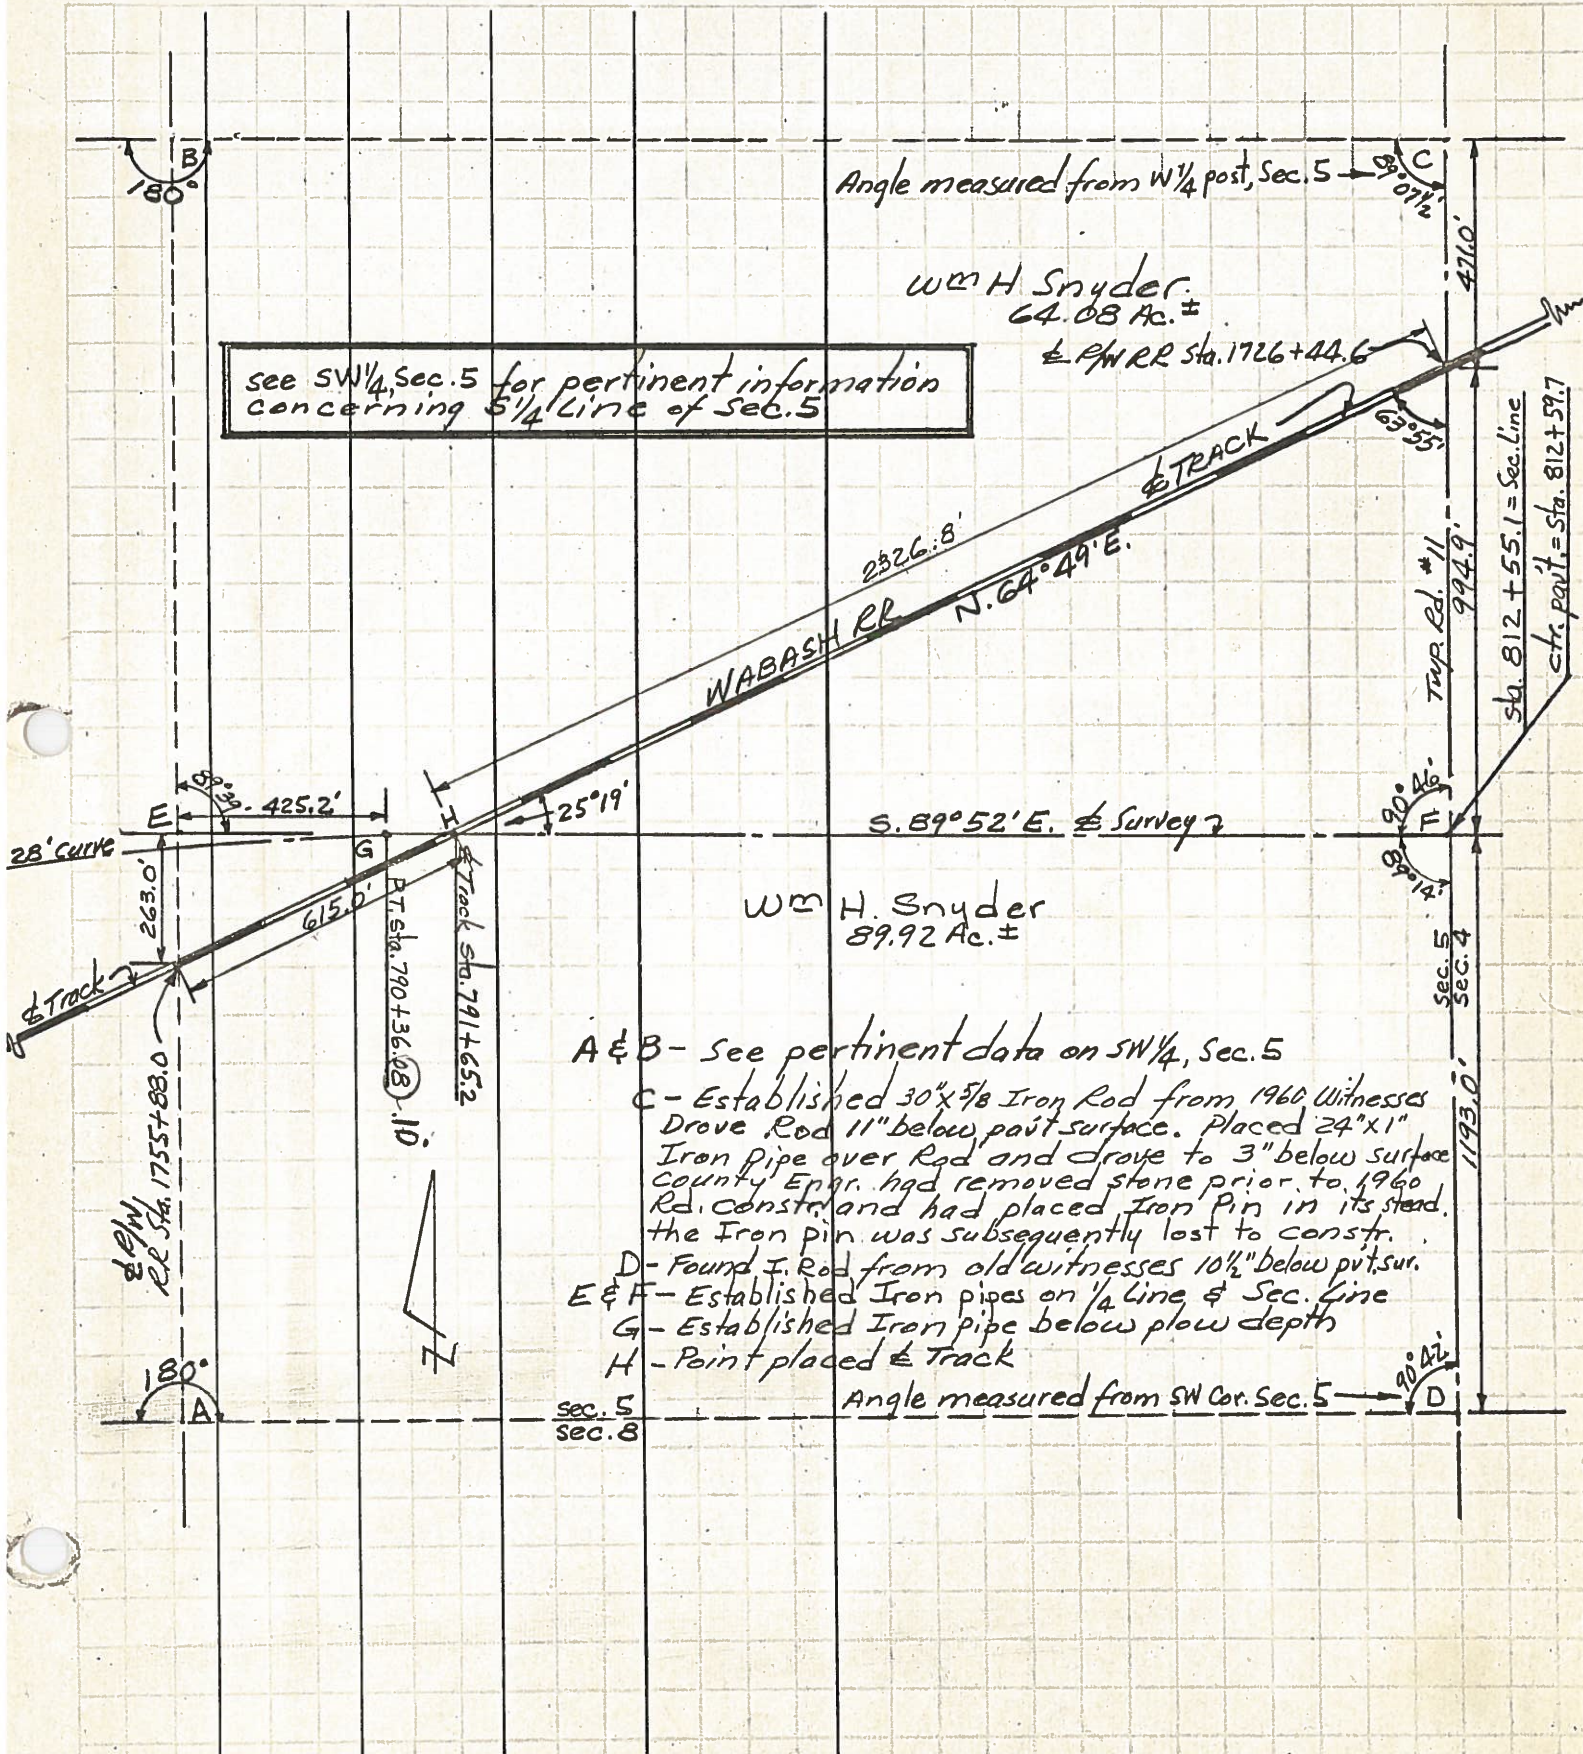 B
180°
Angle measured from W¼ post, Sec. 5
C
89°07½'
471.0'
Wm H Snyder.
64.08 Ac.±
℄ R/W RR Sta. 1726+44.6
see SW¼, Sec. 5 for pertinent information
concerning S¼ Line of Sec. 5
℄ TRACK
63°55'
2326.8'
N. 64°49' E.
WABASH RR
Twp. Rd. #11
994.9'
Sta. 812+55.1 = Sec. Line
ctr. pav't. = Sta. 812+59.7
E
89°39'
425.2'
H
25°19'
S. 89°52' E. ℄ Survey
90°46'
F
89°14'
28' curve
G
263.0'
615.0'
P.T. Sta. 790+36.08 .10
℄ Track Sta. 791+65.2
Wm H. Snyder
89.92 Ac.±
℄ Track
Sec. 5
Sec. 4
1193.0'
℄ R/W
RR Sta. 1755+88.0
A & B - See pertinent data on SW¼, Sec. 5
C - Established 30"x5/8 Iron Rod from 1960 Witnesses
Drove Rod 11" below pav't surface. Placed 24"x1"
Iron Pipe over Rod and drove to 3" below surface
County Engr. had removed stone prior to 1960
Rd. Constr. and had placed Iron Pin in its stead.
the Iron pin was subsequently lost to constr.
D - Found I. Rod from old witnesses 10½" below pvt. sur.
E & F - Established Iron pipes on ¼ Line & Sec. Line
G - Established Iron pipe below plow depth
H - Point placed ℄ Track
180°
A
sec. 5
sec. 8
Angle measured from SW Cor. Sec. 5
90°42'
D